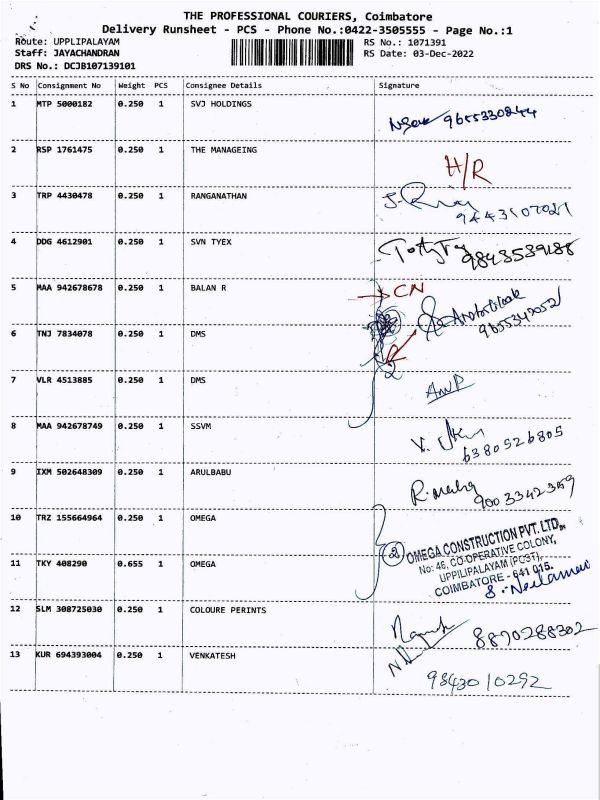 THE PROFESSIONAL COURIERS, Coimbatore
Delivery Runsheet - PCS - Phone No.:0422-3505555 - Page No.:1
Route: UPPLIPALAYAM RS No.: 1071391
Staff: JAYACHANDRAN RS Date: 03-Dec-2022
DRS No.: DCJB107139101
S No Consignment No Weight PCS Consignee Details Signature
1 MTP 5000182 0.250 1 SVJ HOLDINGS 9655330844
2 RSP 1761475 0.250 1 THE MANAGEING H/R
3 TRP 4430478 0.250 1 RANGANATHAN
9443107021
4 DDG 4612901 0.250 1 SVN TYEX 9843539188
5 MAA 942678678 0.250 1 BALAN R CN
6 TNJ 7834078 0.250 1 DMS
2
7 VLR 4513885 0.250 1 DMS
8 MAA 942678749 0.250 1 SSVM
6380526805
9 IXM 502648309 0.250 1 ARULBABU
9003342359
10 TRZ 155664964 0.250 1 OMEGA
2 OMEGA CONSTRUCTION PVT. LTD.,
No: 46, CO-OPERATIVE COLONY,
11 TKY 408290 0.655 1 OMEGA
UPPILIPALAYAM (POST),
COIMBATORE - 641 015.
12 SLM 308725030 0.250 1 COLOURE PERINTS
8870288302
13 KUR 694393004 0.250 1 VENKATESH
9843010292